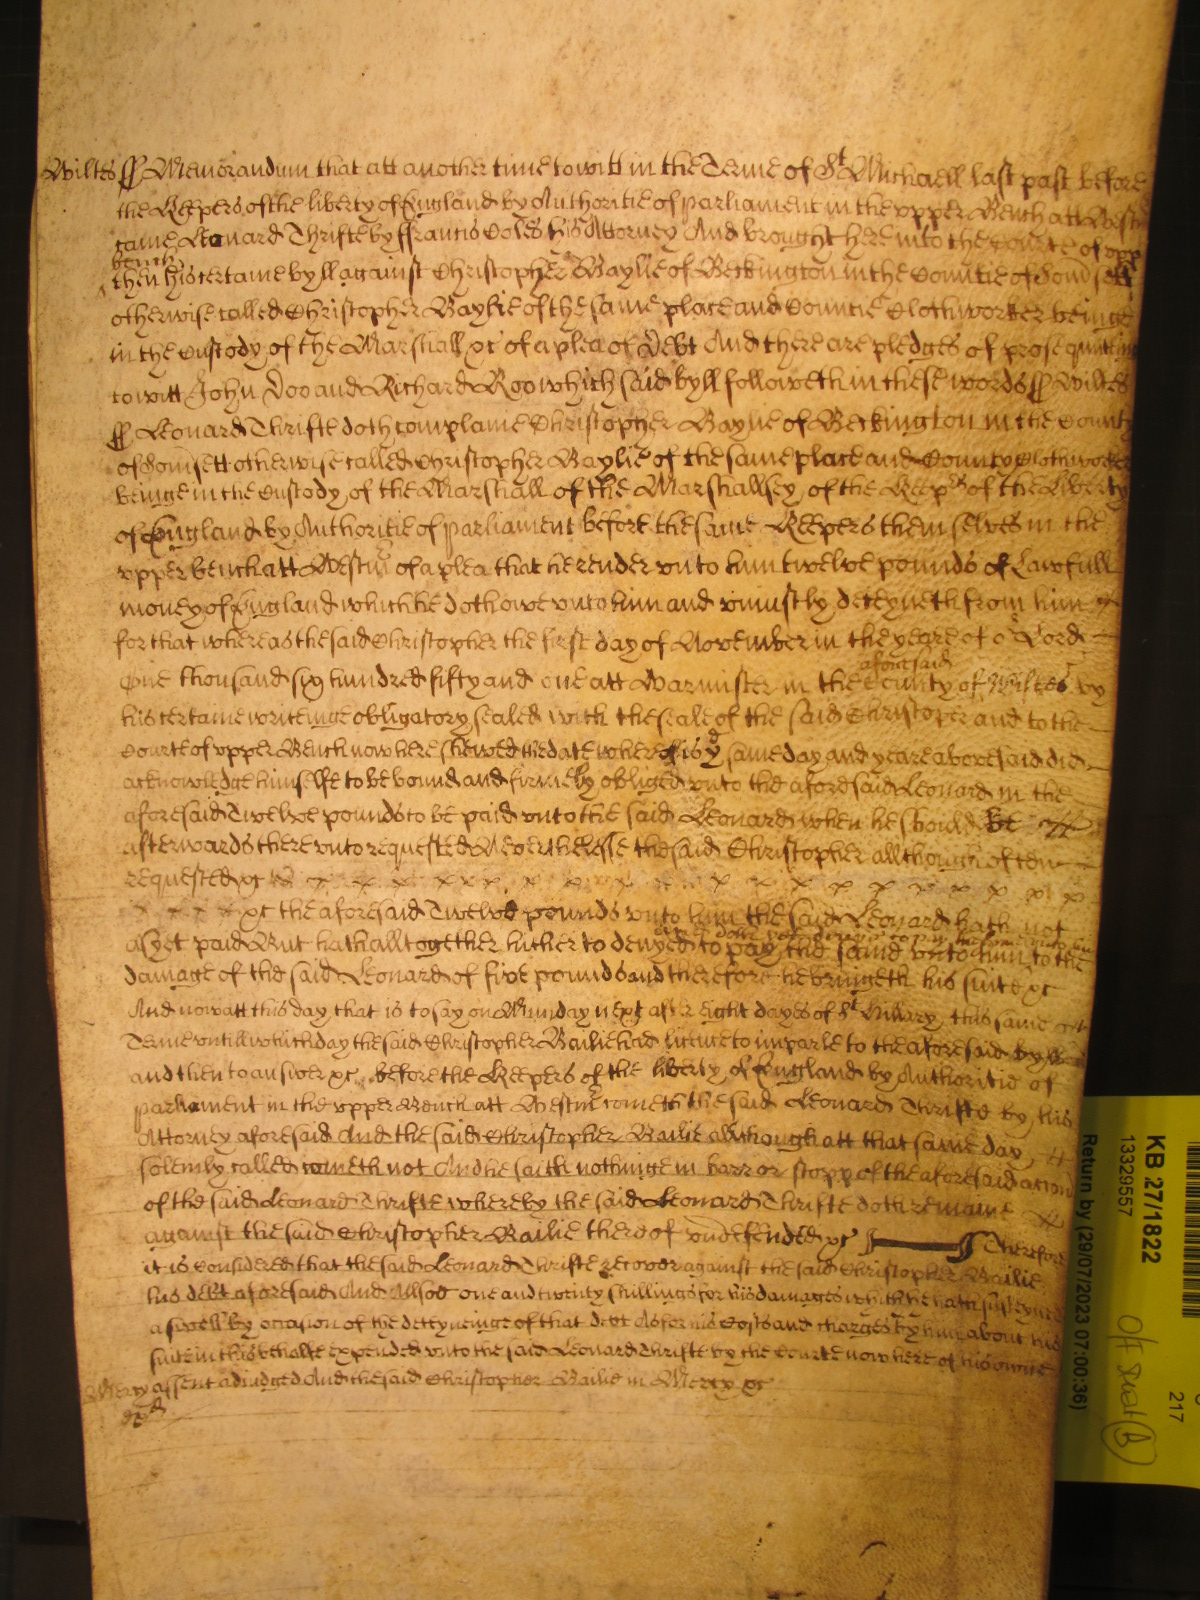 Wiltes ss Memorandum that att another time to witt in the Terme of St Michaell last past before
the Keepers of the liberty of England by Authoritie of parliament in the upper Bench att Westmr
came Leonard Thrifte by Francis Coles his Attorney And brought here into the Courte of upp
bench
then his certaine byll against Christopher Baylie of Beckington in the Countie of Somsett
otherwise called Christopher Baylie of the same place and Countie Clothworker beinge
in the Custody of the Marshall &c of a plea of debt And there are pledges of prosequuting
to witt John Doo and Richard Roo which said byll followeth in these words ss Wiltes
ss Leonard Thrifte doth complaine Christopher Baylie of Beckington in the County
of Somsett otherwise called Christopher Baylie of the same place and County Clothworker
beinge in the Custody of the Marshall of the Marshallsey of the Keeprs of the Liberty
of England by Authoritie of parliament before the same Keepers themselves in the
upper bench att Westmr of a plea that he render unto him twelve pounds of Lawfull
money of England which he doth owe unto him and uniustly deteyneth from him
for that whereas the said Christopher the first day of November in the yeare of or Lord
aforesaid
One thousand six hundred fifty and one att Warmister in the County of Wiltes by
his certaine writeinge obligatory sealed with the seale of the said Christoper and to the
Courte of upper Bench now here shewed the date whereof is ye same day and yeare abovesaid did
acknowledge himselfe to be bound and firmely obliged unto the aforesaid Leonard in the
aforesaid Twelve pounds to be paid unto the said Leonard when he should be
afterwards thereunto requested Neverthelesse the said Christopher allthough often
requested &c x x x x x x x x x x x x x x x x x x x
x x x x &c the aforesaid Twelve pounds unto him the said Leonard hath not
as yet paid But hath alltogether hitherto denyed to pay the same unto him to the
damage of the said Leonard of five pounds and therefore he bringeth his suite &c
And now att this day that is to say on Munday next after eight dayes of St Hillary this same
Terme untill which day the said Christopher Bailie had licence to imparle to the aforesaid byll
and then to answer &c before the Keepers of the liberty of England by Authoritie of
parliament in the upper Bench att Westmr cometh the said Leonard Thrifte by his
Attorney aforesaid And the said Christopher Bailie allthough att that same day
solemly called cometh not And he saith nothinge in barr or stopp of the aforesaid action
of the said Leonard Thrifte whereby the said Leonard Thrifte doth remaine
against the said Christopher Bailie thereof undefended &c Therefore
it is Considered that the said Leonard Thrifte recover against the said Christopher Bailie
his debt aforesaid And Allsoe one and twenty shillings for his damages which he hath susteyned
aswell by occasion of the deteyneinge of that debt As for his Costs and charges by him about his
suite in this behalfe expended unto the said Leonard Thrifte by the Courte now here of his owne
Mercy assent adiudged And the said Christopher Bailie in Mercy &c
KB 27/1822
1332957
Return by (29/07/2023 07:00:36)
217